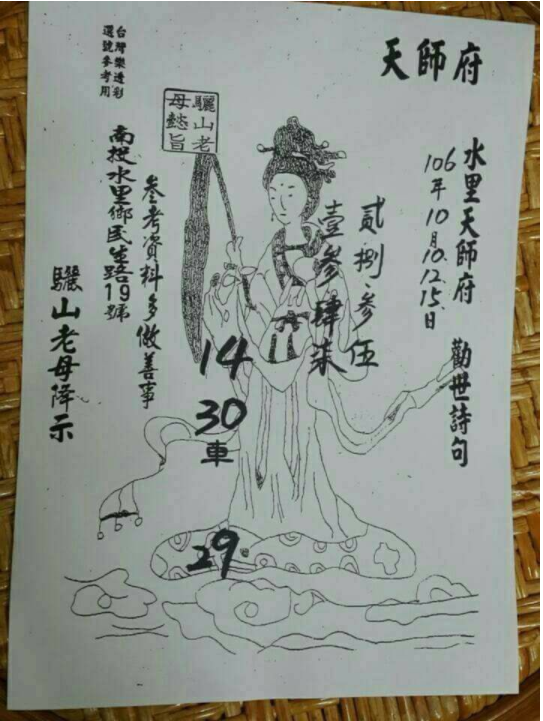 天師府
水里天師府 勸世詩句
106年10月10.12.15日
貳捌、參伍
壹參肆柒
14
30
車
29.
驪山老
母懿旨
參考資料多做善事
南投水里鄉民生路19號
驪山老母降示
台灣樂透彩
選號參考用